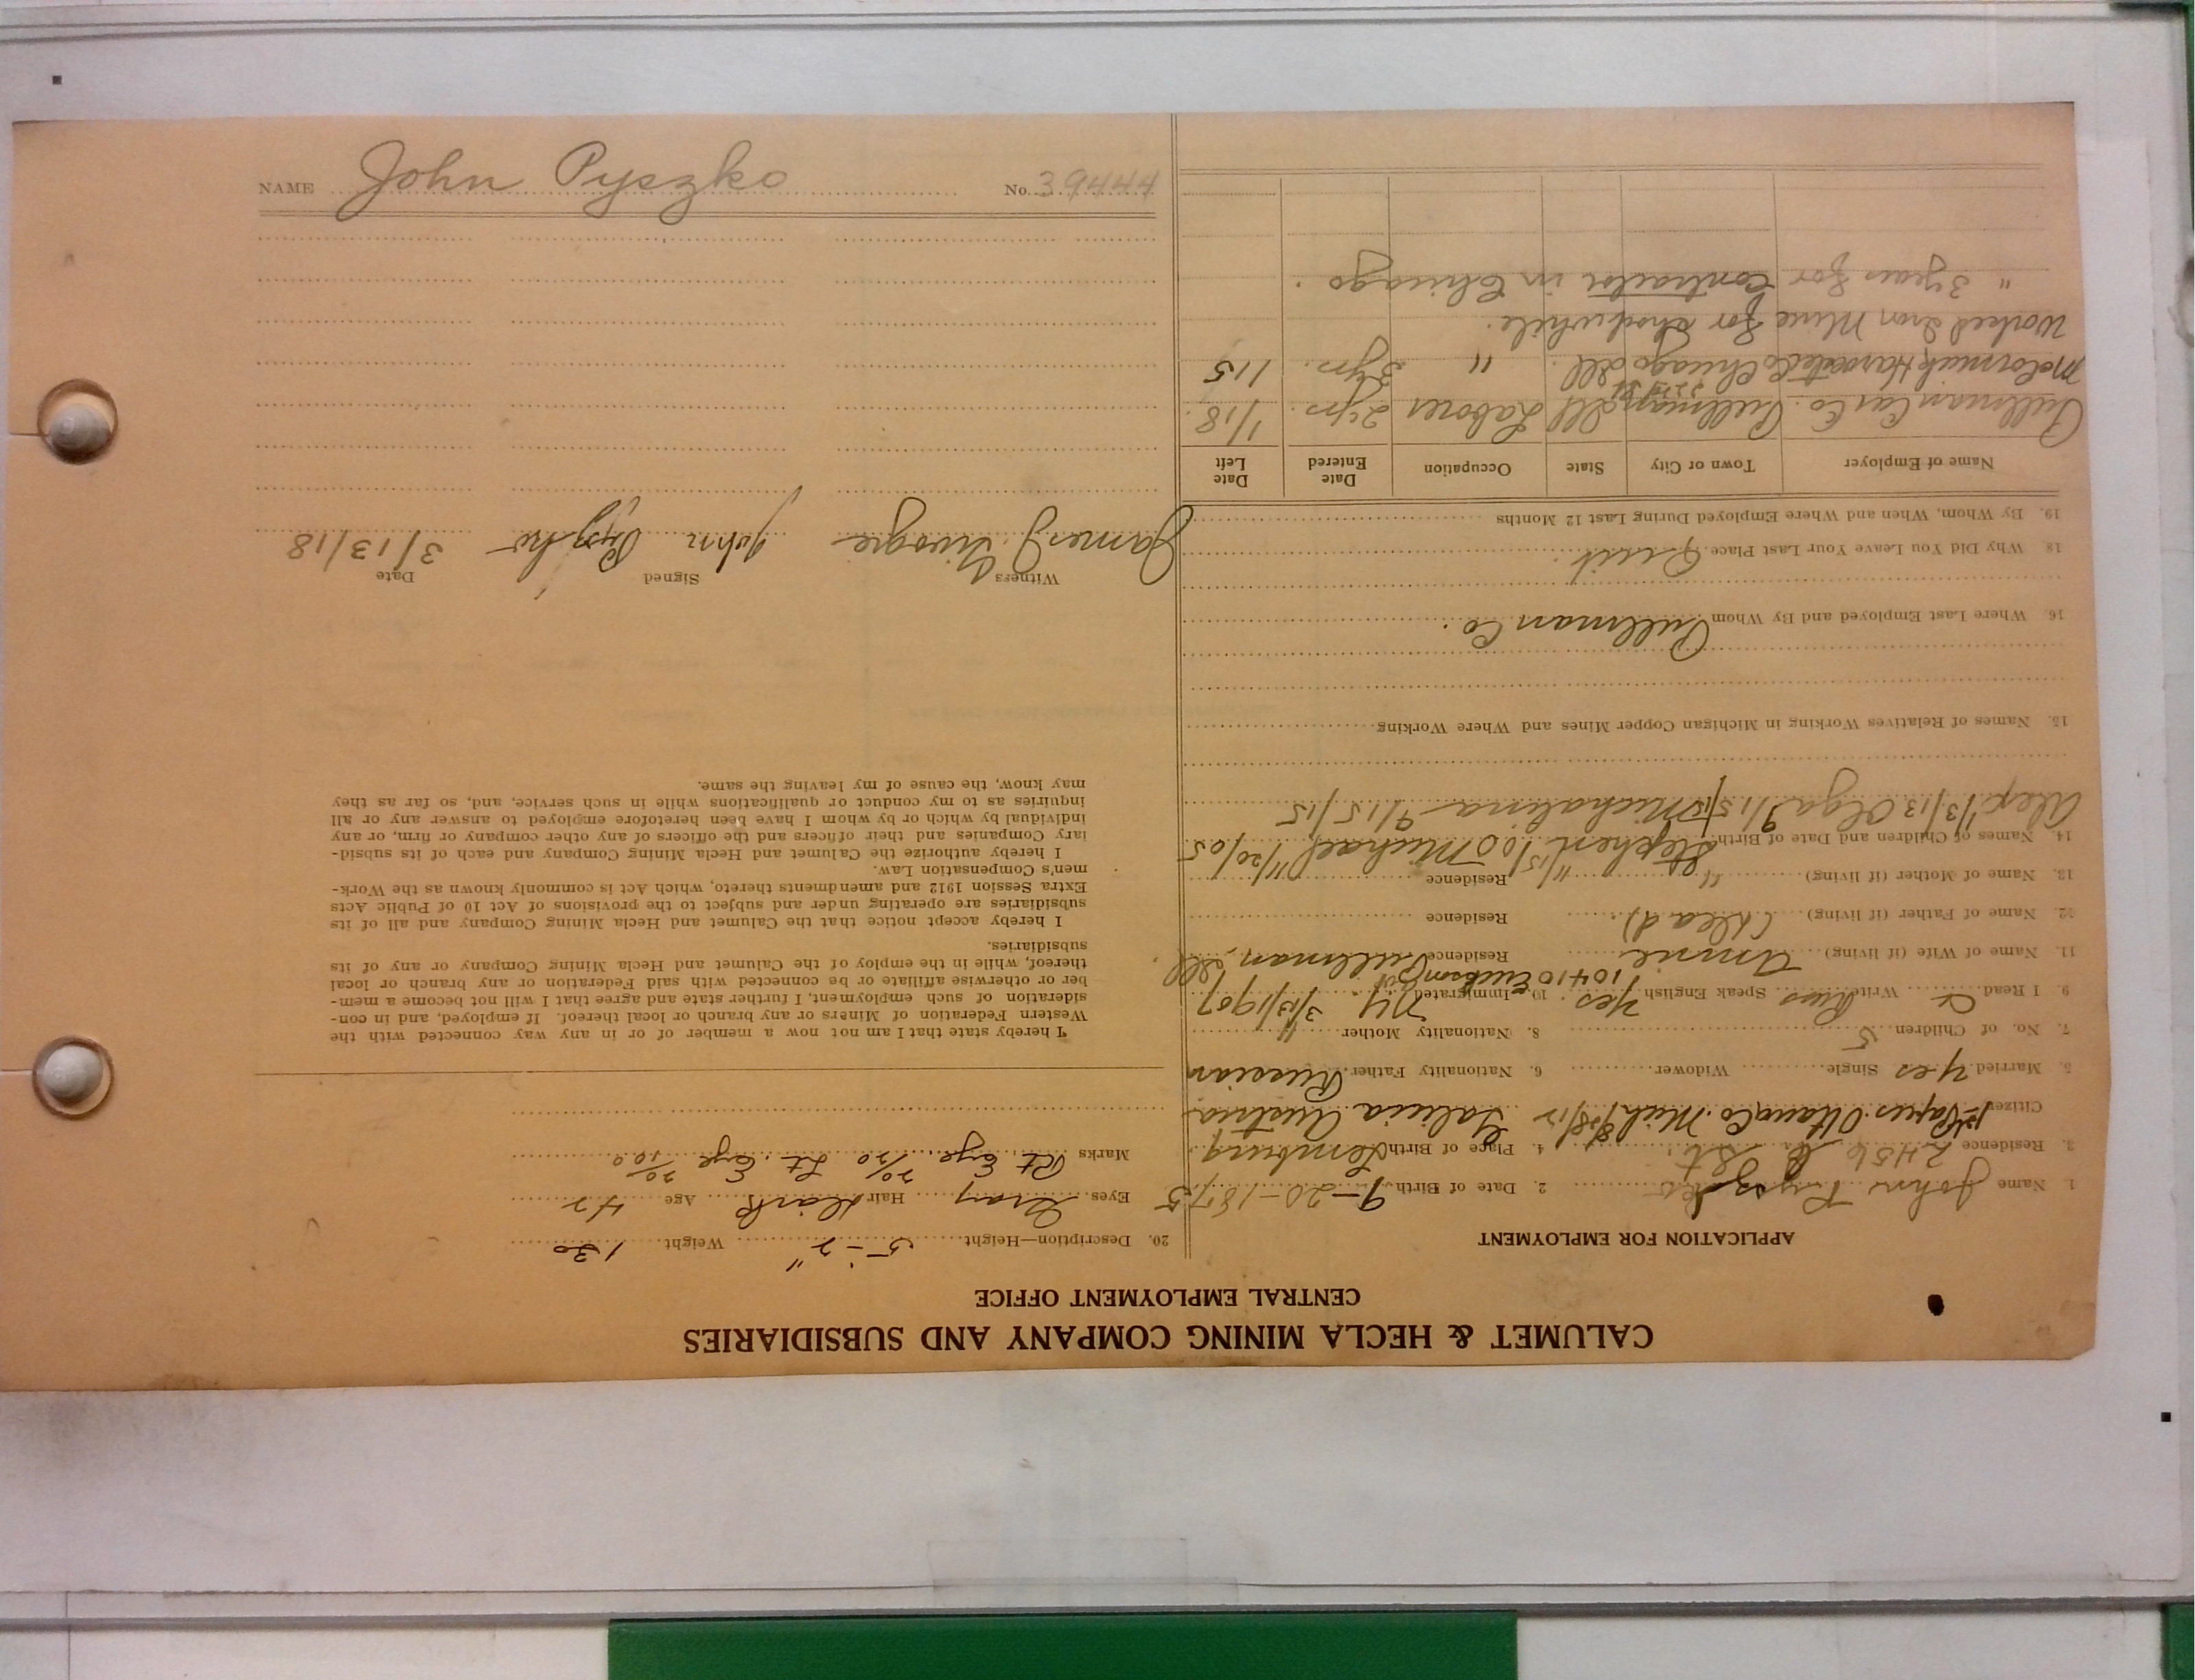 NAME John Pyszko No. 39444
CALUMET & HECLA MINING COMPANY AND SUBSIDIARIES
CENTRAL EMPLOYMENT OFFICE
APPLICATION FOR EMPLOYMENT
1. Name John Pyszko 2. Date of Birth 9-20-1875
3. Residence 2456 B St. 4. Place of Birth Lemburg
Citizen 1st Papers Ottawa Co. Mich Galicia Austria
5. Married yes Single Widower 6. Nationality Father Russian
7. No. of Children 5 8. Nationality Mother "
9. I Read & Write Russ Speak English yes 10. Immigrated NY. 3/13/1907
10410 St
11. Name of Wife (if living) Annie Residence Pullman, Ill.
12. Name of Father (if living) (dead) Residence
13. Name of Mother (if living) " Residence
14. Names of Children and Date of Birth Stephen 11/15/00 Michael 11/20/05
Alex 1/3/13 Olga 9/15/15 Michalina 9/15/15
15. Names of Relatives Working in Michigan Copper Mines and Where Working
16. Where Last Employed and By Whom Pullman Co.
18. Why Did You Leave Your Last Place Quit.
19. By Whom, When and Where Employed During Last 12 Months
Name of Employer Town or City State Occupation Date Entered Date Left
Pullman Car Co. Pullman Ill Laborer 2 yrs. 1/18.
McCormick Harvester Co Chicago Ill. " 3 yrs. 1/15
Worked Iron Mine for short while.
" 3 years for contractor in Chicago.
20. Description—Height 5'-2" Weight 130
Eyes Gray Hair dark Age 42
Marks Rt Eye 20/20 Lt. Eye 20/100
I hereby state that I am not now a member of or in any way connected with the
Western Federation of Miners or any branch or local thereof. If employed, and in con-
sideration of such employment, I further state and agree that I will not become a mem-
ber or otherwise affiliate or be connected with said Federation or any branch or local
thereof, while in the employ of the Calumet and Hecla Mining Company or any of its
subsidiaries.
I hereby accept notice that the Calumet and Hecla Mining Company and all of its
subsidiaries are operating under and subject to the provisions of Act 10 of Public Acts
Extra Session 1912 and amendments thereto, which Act is commonly known as the Work-
men's Compensation Law.
I hereby authorize the Calumet and Hecla Mining Company and each of its subsid-
iary Companies and their officers and the officers of any other company or firm, or any
individual by which or by whom I have been heretofore employed to answer any or all
inquiries as to my conduct or qualifications while in such service, and, so far as they
may know, the cause of my leaving the same.
Witness Signed Date
James J. John Pyszko 3/13/18